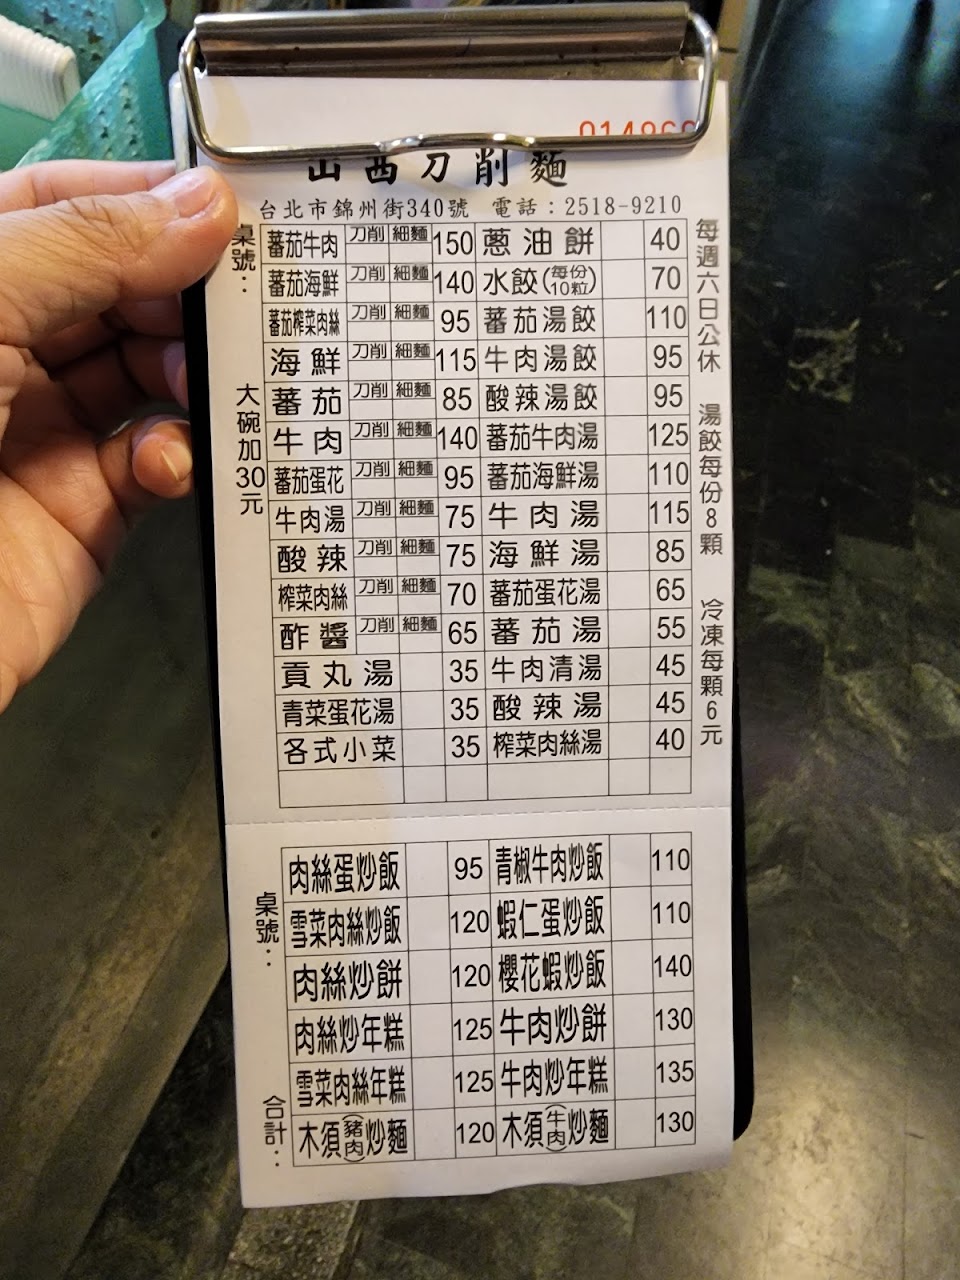 山西刀削麵
台北市錦州街340號 電話：2518-9210
桌號：
大碗加30元
蕃茄牛肉 刀削 細麵 150 蔥油餅 40
蕃茄海鮮 刀削 細麵 140 水餃(每份10粒) 70
蕃茄榨菜肉絲 刀削 細麵 95 蕃茄湯餃 110
海鮮 刀削 細麵 115 牛肉湯餃 95
蕃茄 刀削 細麵 85 酸辣湯餃 95
牛肉 刀削 細麵 140 蕃茄牛肉湯 125
蕃茄蛋花 刀削 細麵 95 蕃茄海鮮湯 110
牛肉湯 刀削 細麵 75 牛肉湯 115
酸辣 刀削 細麵 75 海鮮湯 85
榨菜肉絲 刀削 細麵 70 蕃茄蛋花湯 65
酢醬 刀削 細麵 65 蕃茄湯 55
貢丸湯 35 牛肉清湯 45
青菜蛋花湯 35 酸辣湯 45
各式小菜 35 榨菜肉絲湯 40
每週六日公休 湯餃每份8顆 冷凍每顆6元
桌號：
肉絲蛋炒飯 95 青椒牛肉炒飯 110
雪菜肉絲炒飯 120 蝦仁蛋炒飯 110
肉絲炒餅 120 櫻花蝦炒飯 140
肉絲炒年糕 125 牛肉炒餅 130
雪菜肉絲年糕 125 牛肉炒年糕 135
木須(豬肉)炒麵 120 木須(牛肉)炒麵 130
合計：